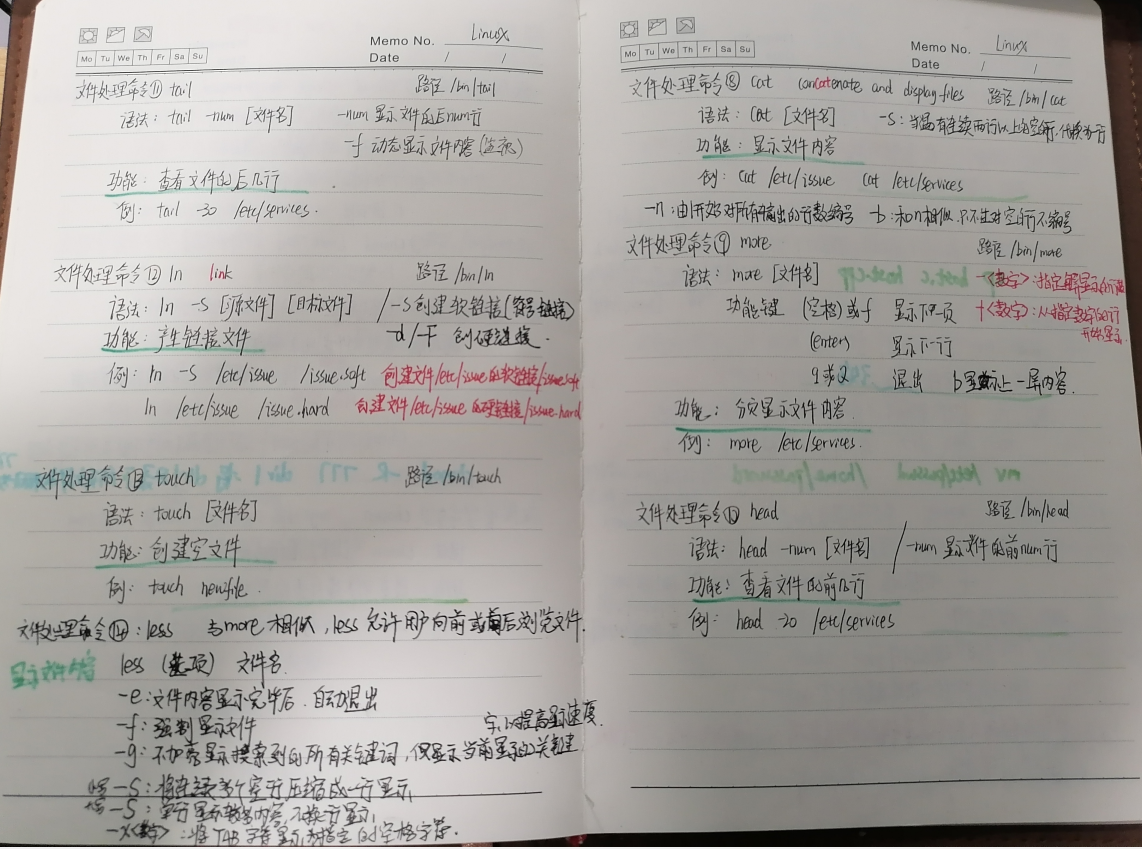 Memo No. Linux
Mo Tu We Th Fr Sa Su
Date / /
文件处理命令⑪ tail 路径 /bin/tail
语法: tail -num [文件名] -num 显示文件的后num行
-f 动态显示文件内容
功能: 查看文件的后几行
例: tail -30 /etc/services.
文件处理命令⑫ ln link 路径 /bin/ln
语法: ln -s [源文件] [目标文件] / -s 创建软链接(符号链接)
功能: 产生链接文件 -d/-F 创硬连接.
例: ln -s /etc/issue /issue.soft 创建文件/etc/issue的软链接/issue.soft
ln /etc/issue /issue.hard 创建文件/etc/issue的硬链接/issue.hard
文件处理命令⑬ touch 路径 /bin/touch
语法: touch [文件名]
功能: 创建空文件
例: touch newfile.
文件处理命令⑭: less 与more相似, less 允许用户向前或向后浏览文件.
显示文件内容 less (选项) 文件名.
-e: 文件内容显示完毕后. 自动退出
-f: 强制显示文件
-g: 不加亮显示搜索到的所有关键词, 仅显示当前显示的关键
字, 以提高显示速度.
小写 -s: 将连续多个空行压缩成一行显示
-S: 单行显示较长内容, 不换行显示
-x<数字>: 将TAB字符显示为指定的空格字符.
Memo No. Linux
Mo Tu We Th Fr Sa Su
Date / /
文件处理命令⑧ cat concatenate and display files 路径 /bin/cat
语法: cat [文件名] -s: 当遇有连续两行以上的空行, 代换为一行
功能: 显示文件内容
例: cat /etc/issue cat /etc/services
-n: 由1开始对所有输出的行数编号 -b: 和n相似, 只不过对空白行不编号
文件处理命令⑨ more 路径 /bin/more
语法: more [文件名] -<数字>: 指定
功能键 (空格)或f 显示下一页 +<数字>: 从指定数字的行
开始显示.
(enter) 显示下一行
q或Q 退出 b 显示上一屏内容.
功能: 分页显示文件内容.
例: more /etc/services.
文件处理命令⑩ head 路径 /bin/head
语法: head -num [文件名] / -num 显示文件的前num行
功能: 查看文件的前几行
例: head -20 /etc/services